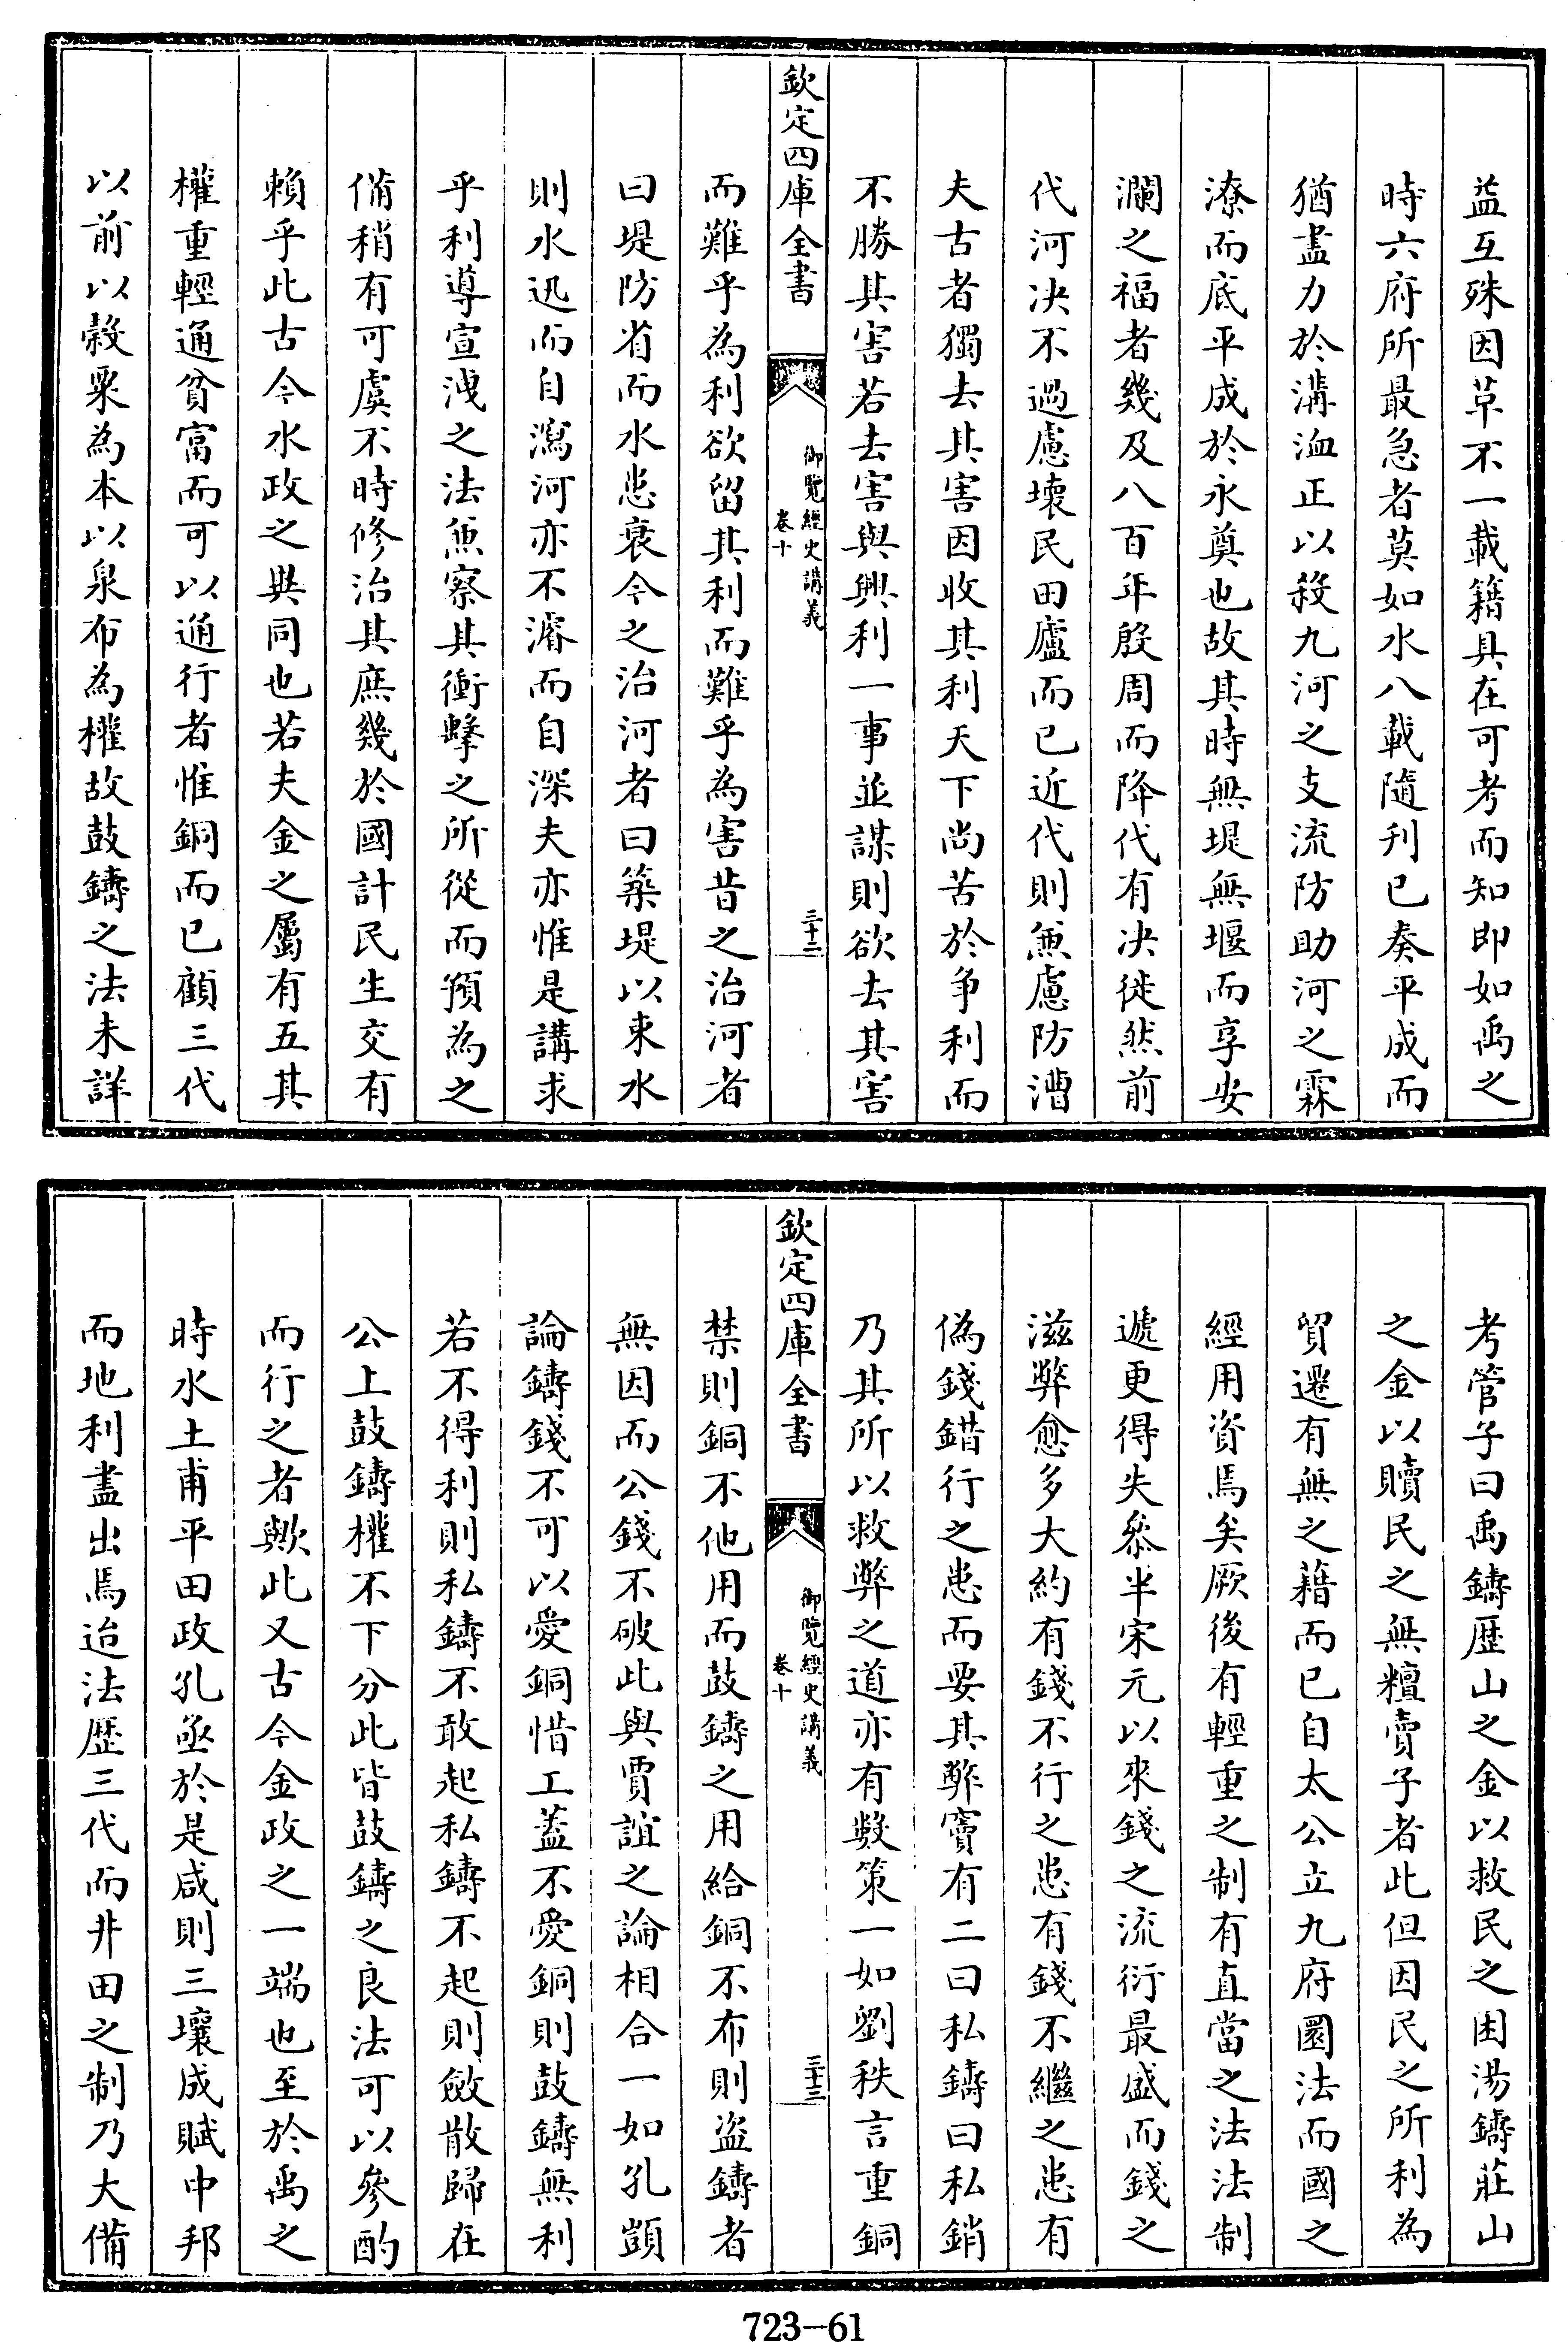 益互殊因革不一載籍具在可考而知即如禹之
時六府所最急者莫如水八載隨刋已奏平成而
猶盡力於溝洫正以殺九河之支流防助河之霖
潦而底平成於永奠也故其時無堤無堰而享安
瀾之福者幾及八百年殷周而降代有决徙然前
代河决不過慮壞民田廬而已近代則兼慮防漕
夫古者獨去其害因收其利天下尚苦於争利而
不勝其害若去害與興利一事並謀則欲去其害
欽定四庫全書
御覽經史講義
卷十
三十二
而難乎為利欲留其利而難乎為害昔之治河者
曰堤防省而水患衰今之治河者曰築堤以束水
則水迅而自瀉河亦不濬而自深夫亦惟是講求
乎利導宣洩之法兼察其衝擊之所從而預為之
備稍有可虞不時修治其庶幾於國計民生交有
賴乎此古今水政之異同也若夫金之屬有五其
權重輕通貧富而可以通行者惟銅而已顧三代
以前以穀粟為本以泉布為權故鼓鑄之法未詳
考管子曰禹鑄歷山之金以救民之困湯鑄莊山
之金以贖民之無糧賣子者此但因民之所利為
貿遷有無之藉而已自太公立九府圜法而國之
經用資焉矣厥後有輕重之制有直當之法法制
遞更得失叅半宋元以來錢之流衍最盛而錢之
滋弊愈多大約有錢不行之患有錢不繼之患有
偽錢錯行之患而要其弊竇有二曰私鑄曰私銷
乃其所以救弊之道亦有數策一如劉秩言重銅
欽定四庫全書
御覽經史講義
卷十
三十三
禁則銅不他用而鼓鑄之用給銅不布則盗鑄者
無因而公錢不破此與賈誼之論相合一如孔顗
論鑄錢不可以愛銅惜工蓋不愛銅則鼓鑄無利
若不得利則私鑄不敢起私鑄不起則斂散歸在
公上鼓鑄權不下分此皆鼓鑄之良法可以參酌
而行之者歟此又古今金政之一端也至於禹之
時水土甫平田政孔亟於是咸則三壤成賦中邦
而地利盡出焉迨法歷三代而井田之制乃大備
723-61